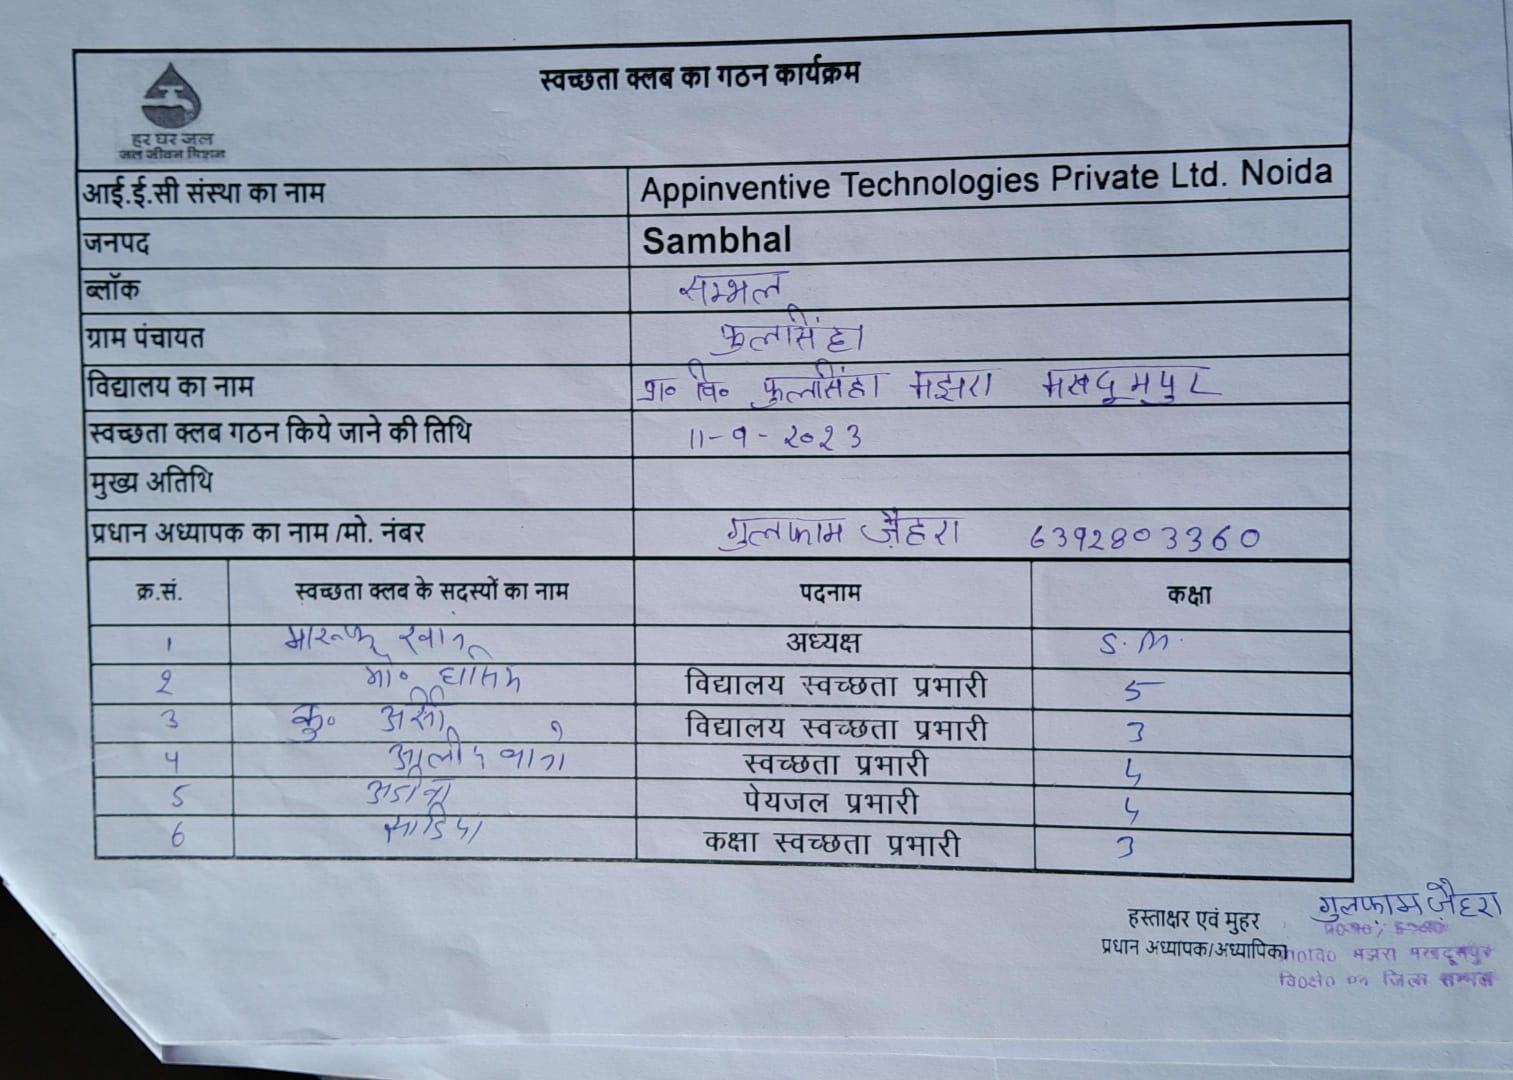 स्वच्छता क्लब का गठन कार्यक्रम
हर घर जल
जल जीवन मिशन
आई.ई.सी संस्था का नाम Appinventive Technologies Private Ltd. Noida
जनपद Sambhal
ब्लॉक सम्भल
ग्राम पंचायत फुलसिंहा
विद्यालय का नाम प्रा० वि० फुलसिंहा मझरा मखदूमपुर
स्वच्छता क्लब गठन किये जाने की तिथि 11-9-2023
मुख्य अतिथि
प्रधान अध्यापक का नाम /मो. नंबर गुलफाम जैहरा 6392803360
क्र.सं. स्वच्छता क्लब के सदस्यों का नाम पदनाम कक्षा
1 अध्यक्ष S.M.
2 मो० विद्यालय स्वच्छता प्रभारी 5
3 कु० विद्यालय स्वच्छता प्रभारी 3
4 स्वच्छता प्रभारी 4
5 पेयजल प्रभारी 4
6 सादिया कक्षा स्वच्छता प्रभारी 3
हस्ताक्षर एवं मुहर गुलफाम जैहरा
प्रधान अध्यापक/अध्यापिका
मझरा मखदूमपुर
जिला सम्भल